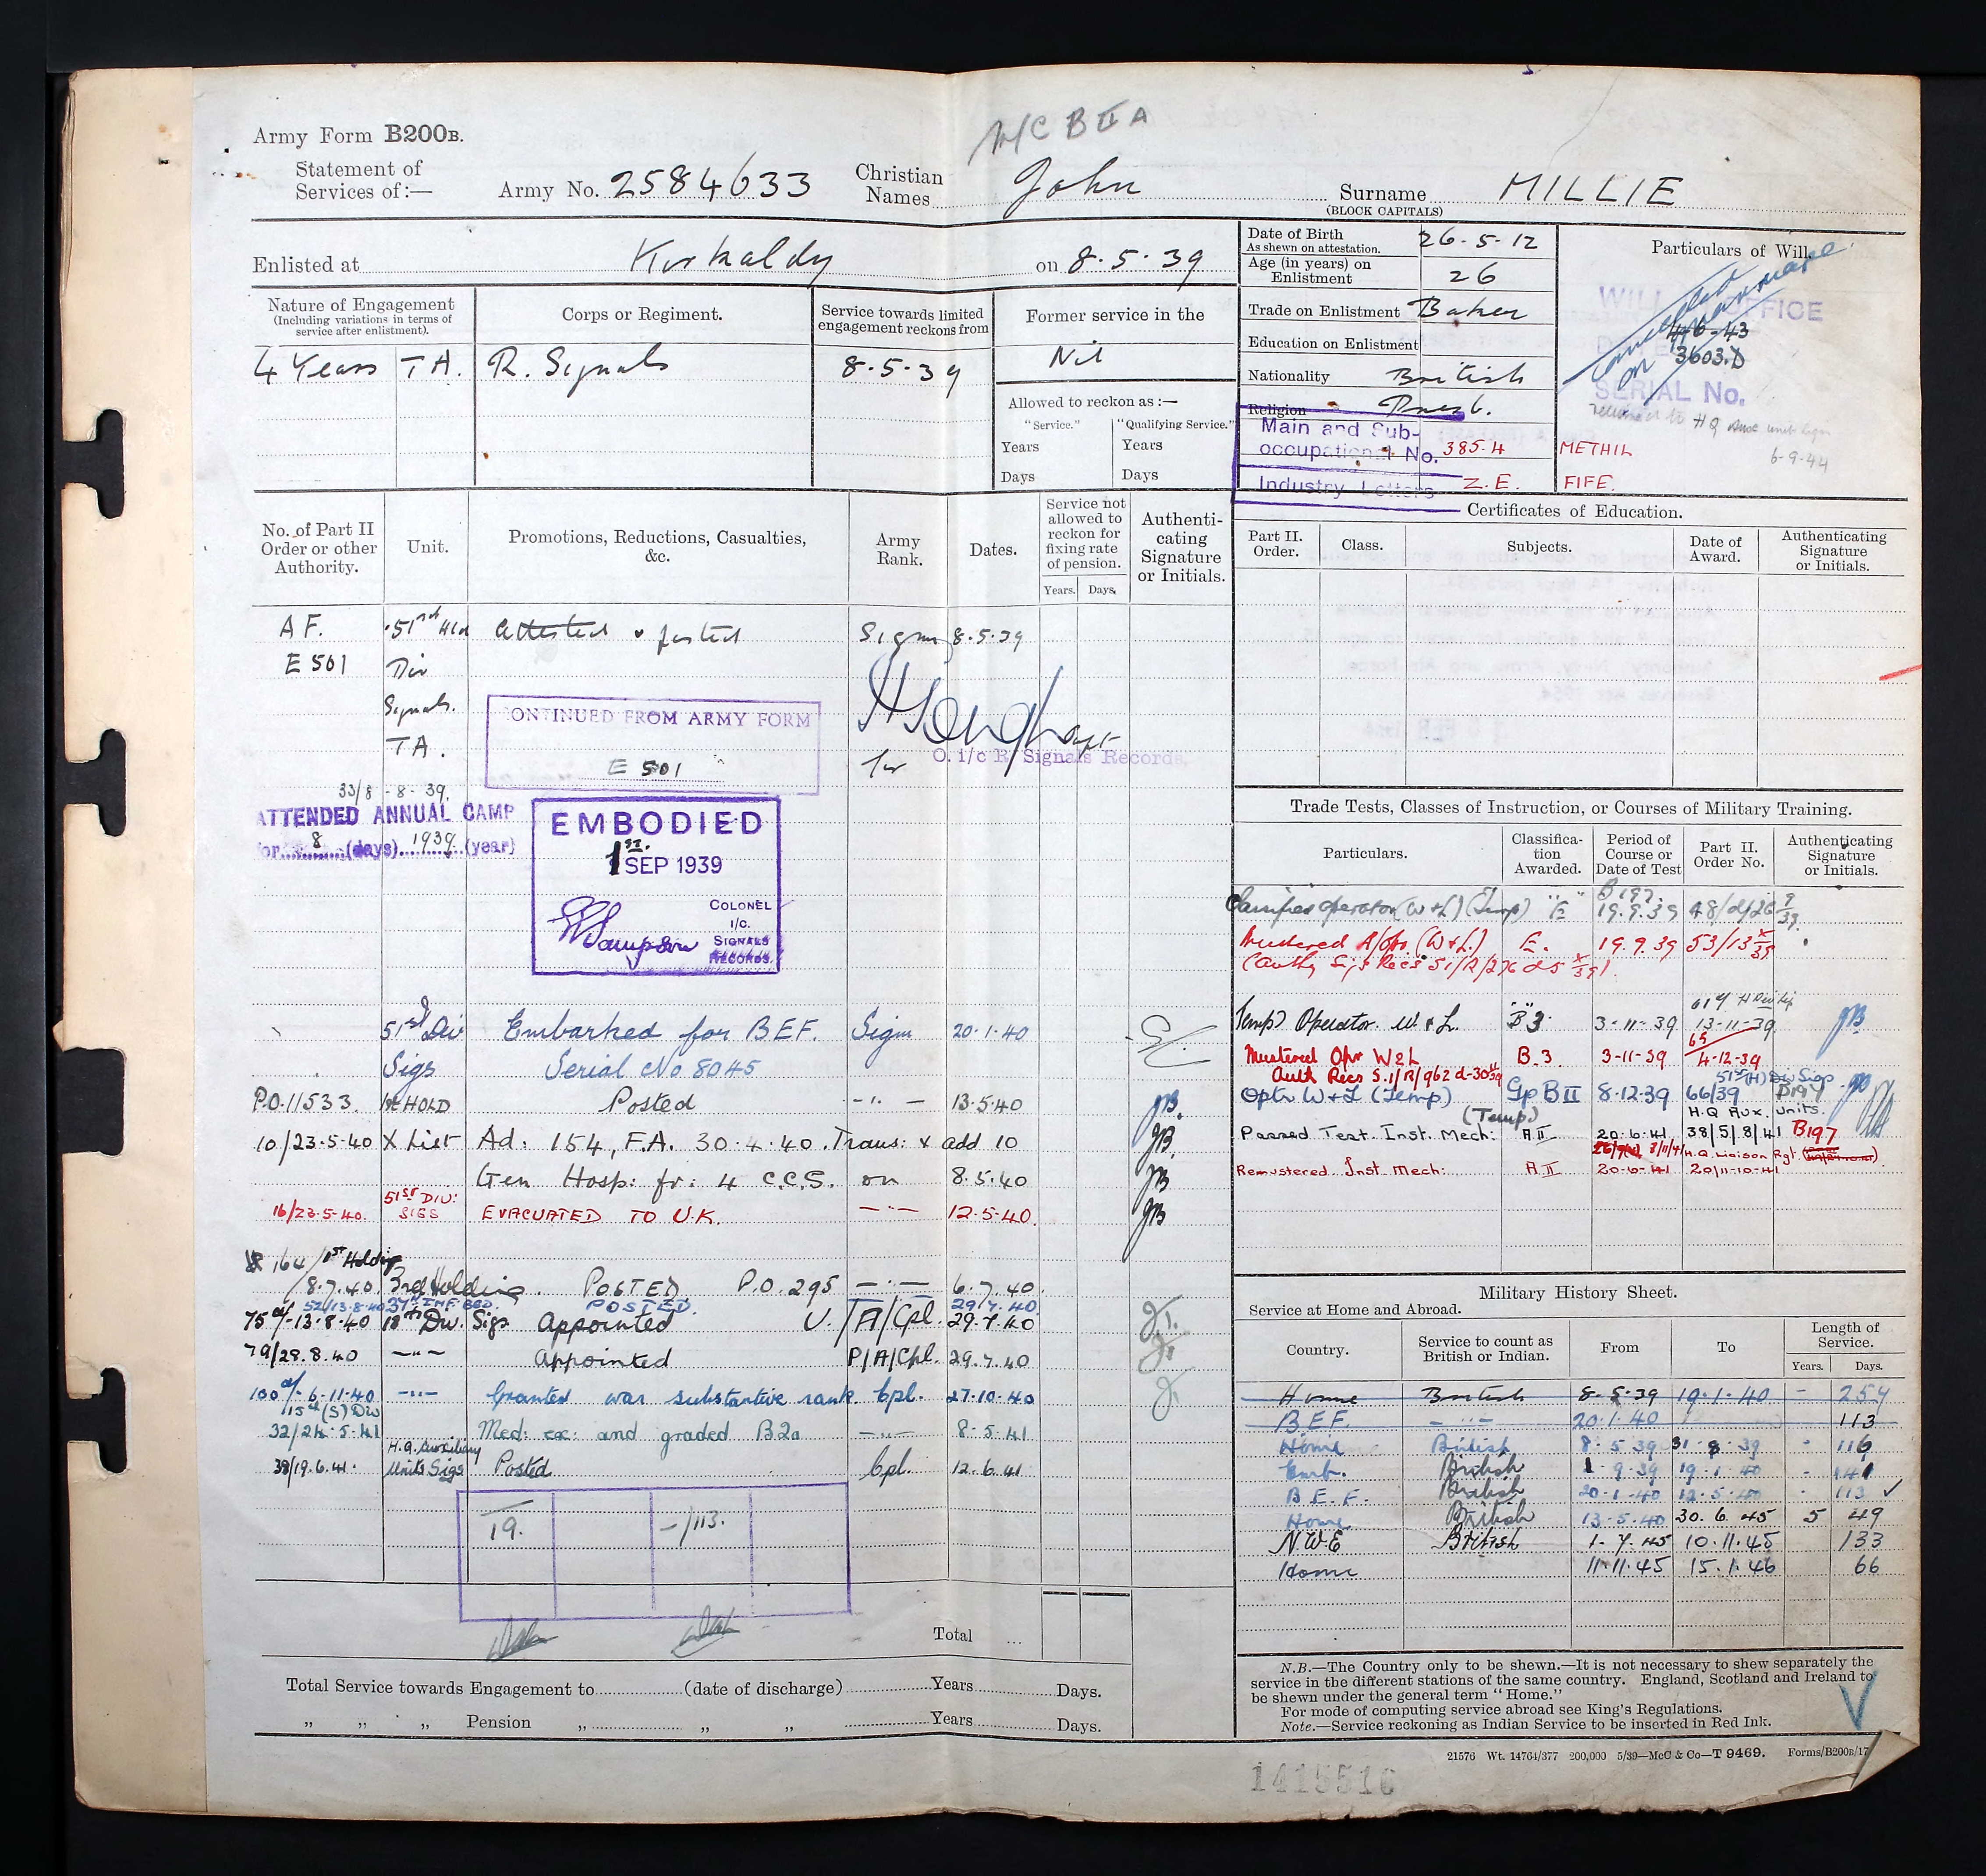 McB II A
Army Form B200B.
Statement of Services of:— Army No. 2584633 Christian Names John Surname (BLOCK CAPITALS) MILLIE
Enlisted at Kirkaldy on 8·5·39
Nature of Engagement (Including variations in terms of service after enlistment). Corps or Regiment. Service towards limited engagement reckons from Former service in the
4 Years TA. R. Signals 8·5·39 Nil
Allowed to reckon as :—
"Service." "Qualifying Service."
Years Years
Days Days
Date of Birth As shewn on attestation. 26·5·12
Age (in years) on Enlistment 26
Trade on Enlistment Baker
Education on Enlistment
Nationality British
Religion Presb.
Main and Sub-occupational No. 385·4
Industry Letters Z.E.
Particulars of Will.
cancelled on marriage
WILL OFFICE
4·6·43
3603.D
SERIAL No.
returned to HQ
6-9-44
METHIL
FIFE.
No. of Part II Order or other Authority. Unit. Promotions, Reductions, Casualties, &c. Army Rank. Dates. Service not allowed to reckon for fixing rate of pension. Years. Days. Authenticating Signature or Initials.
AF. 51st Hld attested & posted Sigm 8·5·39
E501 Div
Signals.
TA.
CONTINUED FROM ARMY FORM
E 501
for O. i/c R. Signals Records.
33/8-8-39.
ATTENDED ANNUAL CAMP
for 8 (days) 1939 (year)
EMBODIED
1st SEP 1939
Sampson
COLONEL
I/C.
SIGNALS
RECORDS.
51st Div Embarked for BEF. Sigm 20·1·40
Sigs Serial No 8045
P.O.11533. 1st HOLD Posted -"- 13·5·40
10/23·5·40 X List Ad: 154, F.A. 30·4·40. Trans: & add 10
Gen Hosp: fr: 4 C.C.S. on 8·5·40
16/23·5·40. 51ST DIV: SIGS EVACUATED TO U.K. -"- 12·5·40.
164/1st Holding
8.7.40 3rd Holding. POSTED P.O. 295 -"- 6.7.40.
52/13·8·40 37th INF. BGD. POSTED. 29/7.40.
75 d/-13·8·40 18th Div. Sigs Appointed U./A/Cpl. 29.7.40
79/28.8.40 -"- Appointed P/A/Cpl. 29.7.40
100 d/- 6·11·40 -"- Granted war substantive rank Cpl. 27·10·40
15th (S) Div
32/24·5·41 Med: ex: and graded B2a -"- 8·5·41
38/19.6.41. H.Q. Auxiliary Units Sigs Posted Cpl. 12.6.41
19. -/113.
Total ...
Total Service towards Engagement to (date of discharge) Years Days.
" " " Pension " " " Years Days.
Certificates of Education.
Part II. Order. Class. Subjects. Date of Award. Authenticating Signature or Initials.
Trade Tests, Classes of Instruction, or Courses of Military Training.
Particulars. Classification Awarded. Period of Course or Date of Test Part II. Order No. Authenticating Signature or Initials.
B197.
Classified operator (W & L) (Temp) E 19.9.39 48/2/26 9/39.
Mustered A/Opr. (W & L.) E. 19.9.39 53/13 x/39
(Authy Sigs Recs S1/R/276 d 5 x/39).
(Temp) Operator. W & L. B3 3-11-39 13-11-39
Mustered Opr W&L B.3. 3-11-39 65 4-12-39
Auth Recs S.1/R/962 d-30
Optr W & L (Temp) Gp B II 8·12·39 66/39 51st (H) Div Sigs
(Temp) H.Q Aux. Units.
Passed Test. Inst. Mech: A II 20·6·41 38/5/8/41 B197
H.Q. Liaison Rgt.
Remustered Inst Mech: A II 20-6-41 20/11-10-41
Military History Sheet.
Service at Home and Abroad.
Country. Service to count as British or Indian. From To Length of Service. Years. Days.
Home British 8·5·39 19·1·40 - 257
B.E.F. -"- 20·1·40 113
Home British 8·5·39 31·8·39 - 116
Emb. British 1·9·39 19·1·40 - 141
B.E.F. British 20·1·40 12·5·40 - 113 ✓
Home British 13·5·40 30.6.45 5 49
N.W.E British 1·7·45 10·11·45 133
Home 11·11·45 15·1·46 66
N.B.—The Country only to be shewn.—It is not necessary to shew separately the
service in the different stations of the same country. England, Scotland and Ireland to
be shewn under the general term "Home."
For mode of computing service abroad see King's Regulations.
Note.—Service reckoning as Indian Service to be inserted in Red Ink.
21576 Wt. 14764/377 200,000 5/39—McC & Co—T 9469. Forms/B200B/17